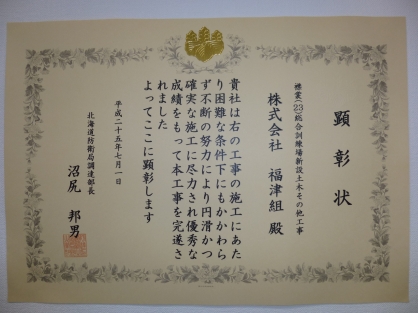 顕彰状
襟裳(23)総合訓練場新設土木その他工事
株式会社 福津組 殿
貴社は右の工事の施工にあた
り困難な条件下にもかかわら
ず不断の努力により円滑かつ
確実な施工に尽力され優秀な
成績をもって本工事を完遂さ
れました
よってここに顕彰します
平成二十五年七月一日
北海道防衛局調達部長
沼尻 邦男